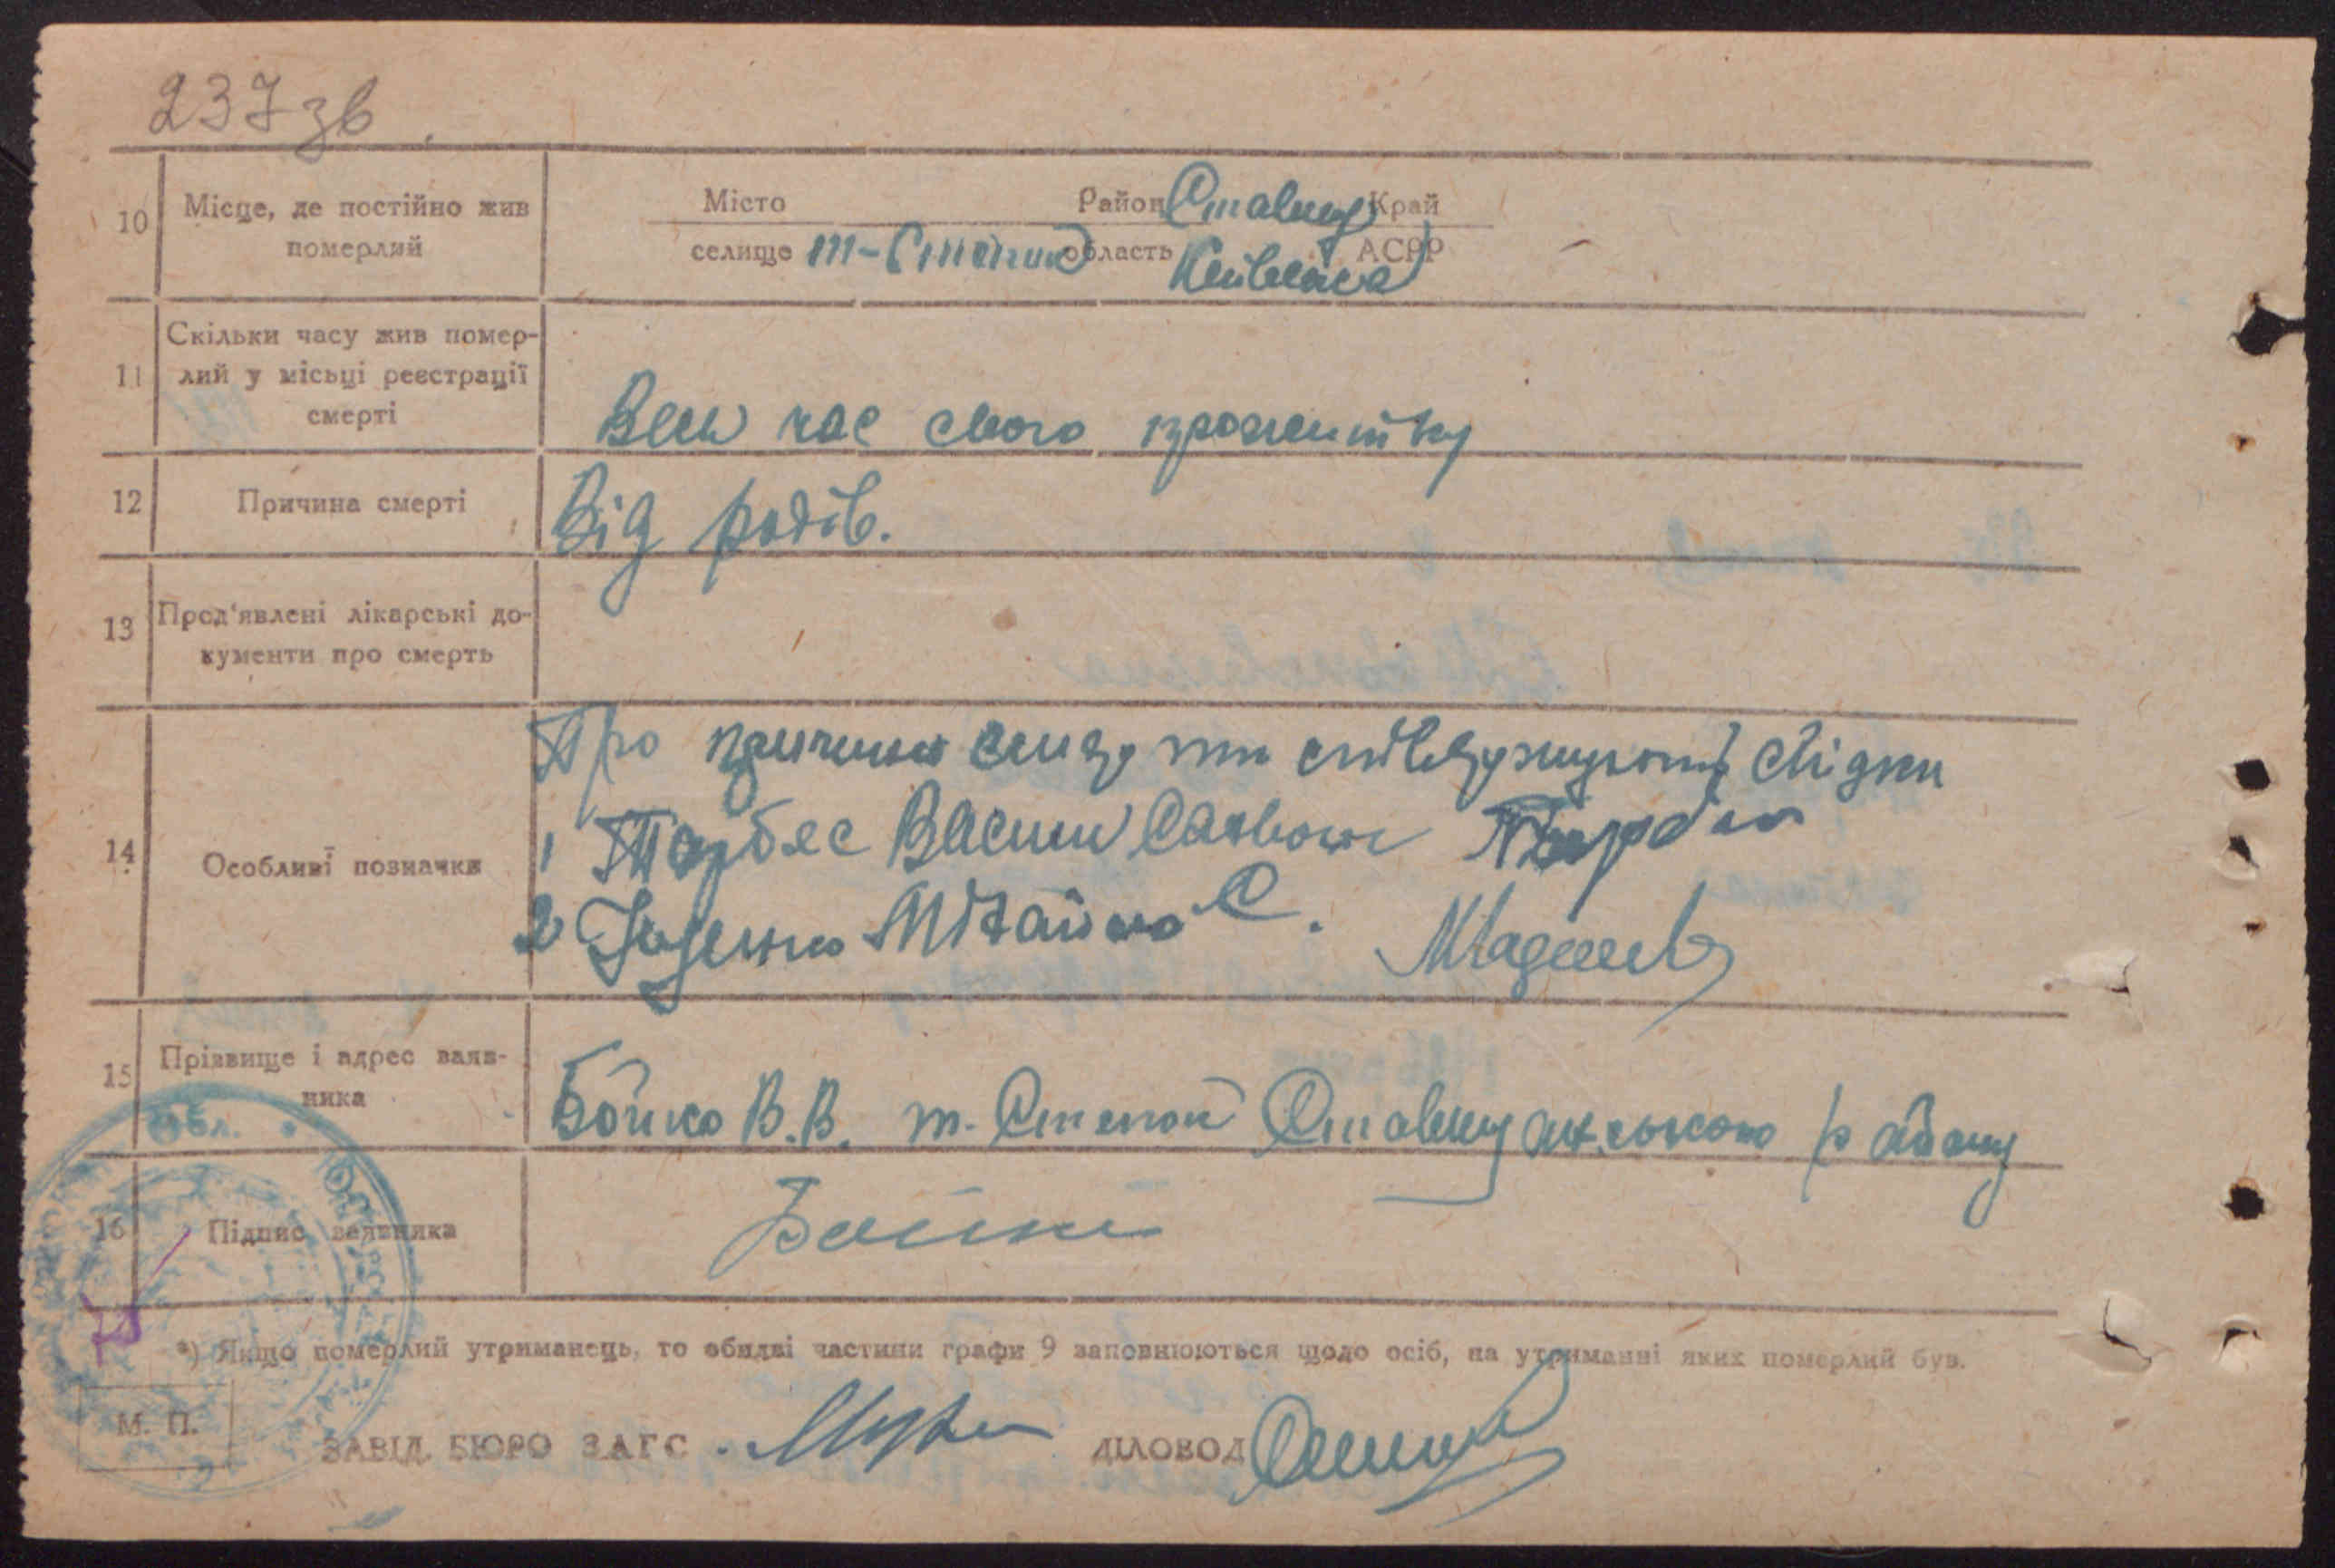 237 зв.
10 Місце, де постійно жив померлий
Місто Район Ставищ Край
селище т-Степок область Київська АСРР
11 Скільки часу жив помер-
лий у місьці реєстрації
смерті
Весь час свого прожитку
12 Причина смерті Від родів.
13 Пред'явлені лікарські до-
кументи про смерть
14 Особливї позначки
Про причини свідки
1 Василь
2 Михайло С.
15 Прізвище і адрес заяв-
ника
Бойко В.В. т. Степок Ставищанського району
16 Підпис заявника Бойко
Обл.
*) Якщо померлий утриманець, то обидві частини графи 9 заповнюються щодо осіб, на утриманні яких померлий був.
М. П.
ЗАВІД. БЮРО ЗАГС ДІЛОВОД